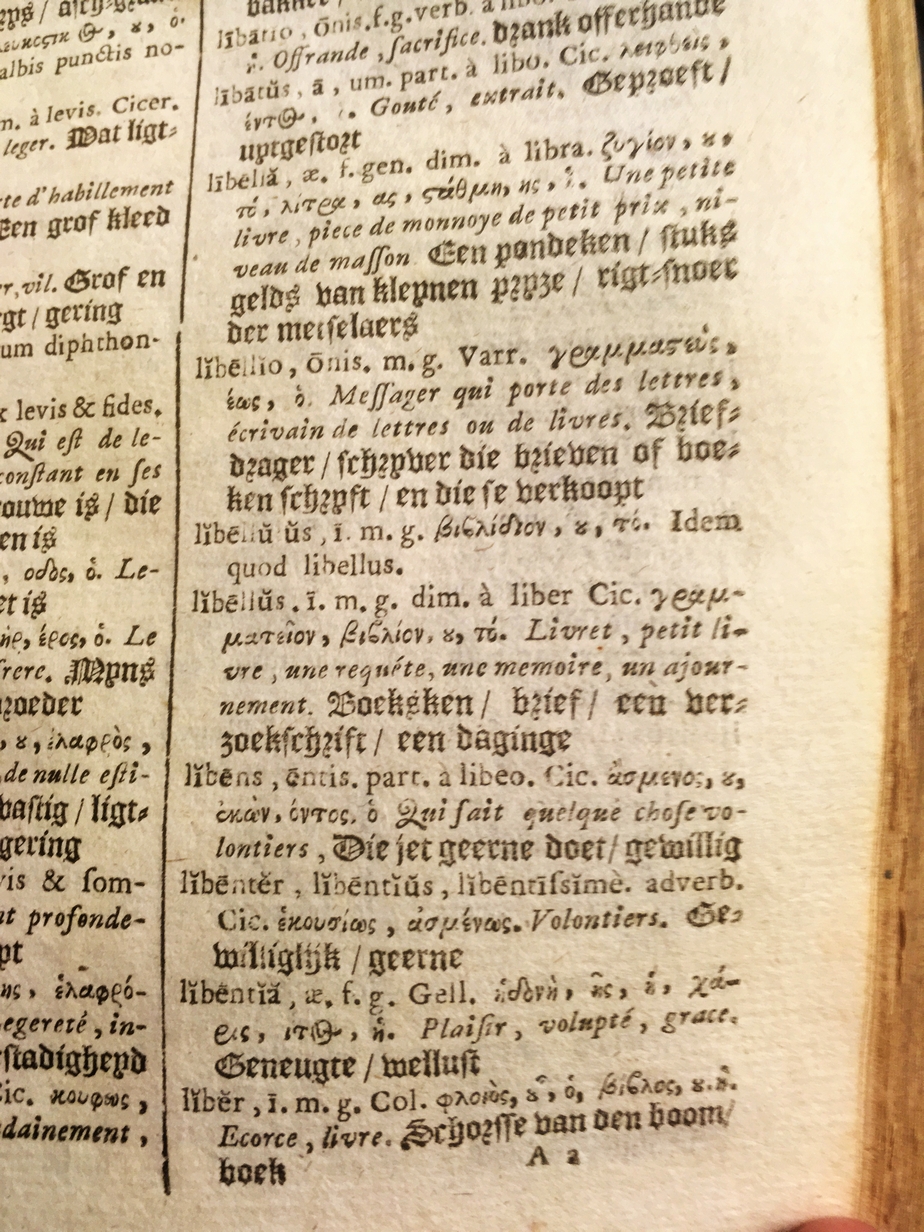 albis punctis no-
n. à levis. Cicer.
leger. Wat ligt-
rte d'habillement
Een grof kleed
er, vil. Grof en
rgt / gering
um diphthon-
x levis & fides.
Qui est de le-
constant en ses
rouwe is / die
en is
, οδὸς, ὁ. Le-
et is
ὴρ, έρος, ὁ. Le
frere. Myns
broeder
, ȣ, ἐλαφρὸς,
de nulle esti-
vastig / ligt-
gering
vis & som-
nt profonde-
pt
ης, ἐλαφρό-
egereté, in-
stadigheyd
Cic. κουφως,
dainement,
lībātio, ōnis. f. g. verb. à libo.
Offrande, sacrifice. Drank offerhande
lībātŭs, ā, um. part. à libo. Cic. λειφθεὶς,
έντ⊙. Gouté, extrait. Geproeft /
uytgestort
lībellă, æ. f. gen. dim. à libra. ζυγίον, ȣ,
τό, λιτρα, ας, στάθμη, ης, ἡ. Une petite
livre, piece de monnoye de petit prix, ni-
veau de masson. Een pondeken / stuks
gelds van kleynen pryze / rigt-snoer
der metselaers
lĭbēllio, ōnis. m. g. Varr. γραμματεὺς,
έως, ὁ. Messager qui porte des lettres,
écrivain de lettres ou de livres. Brief-
drager / schryver die brieven of boe-
ken schryft / en die se verkoopt
lĭbēllŭlŭs, ī. m. g. βιβλίδιον, ȣ, τό. Idem
quod libellus.
lĭbēllŭs. ī. m. g. dim. à liber Cic. γραμ-
ματεῖον, βιβλίον, ȣ, τό. Livret, petit li-
vre, une requéte, une memoire, un ajour-
nement. Boeksken / brief / een ver-
zoekschrift / een daginge
lĭbēns, ēntis. part. à libeo. Cic. ἀσμενος, ȣ,
ἑκὼν, όντος, ὁ Qui fait quelque chose vo-
lontiers, Die jet geerne doet / gewillig
lĭbēntĕr, lĭbēntĭŭs, lĭbēntīssĭmè. adverb.
Cic. ἑκουσίως, ἀσμένως. Volontiers. Ge-
williglijk / geerne
lĭbēntĭă, æ. f. g. Gell. ἡδονὴ, ῆς, ἡ, χά-
ρις, ιτ⊙, ἡ. Plaisir, volupté, grace.
Geneugte / wellust
lĭbĕr, ī. m. g. Col. φλοιὸς, ȣ, ὁ, βιβλος, ȣ. ἡ.
Ecorce, livre. Schorsse van den boom /
boek
A a